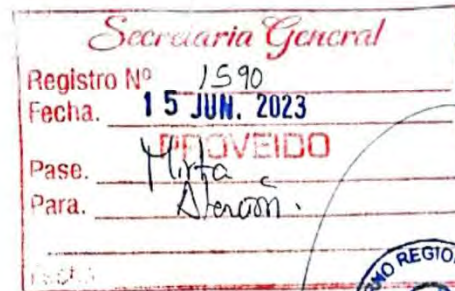 Secretaria General
Registro Nº 1590
Fecha. 15 JUN. 2023
PROVEIDO
Pase. Mirta
Para. Atención.
Fecha
RNO REGIO